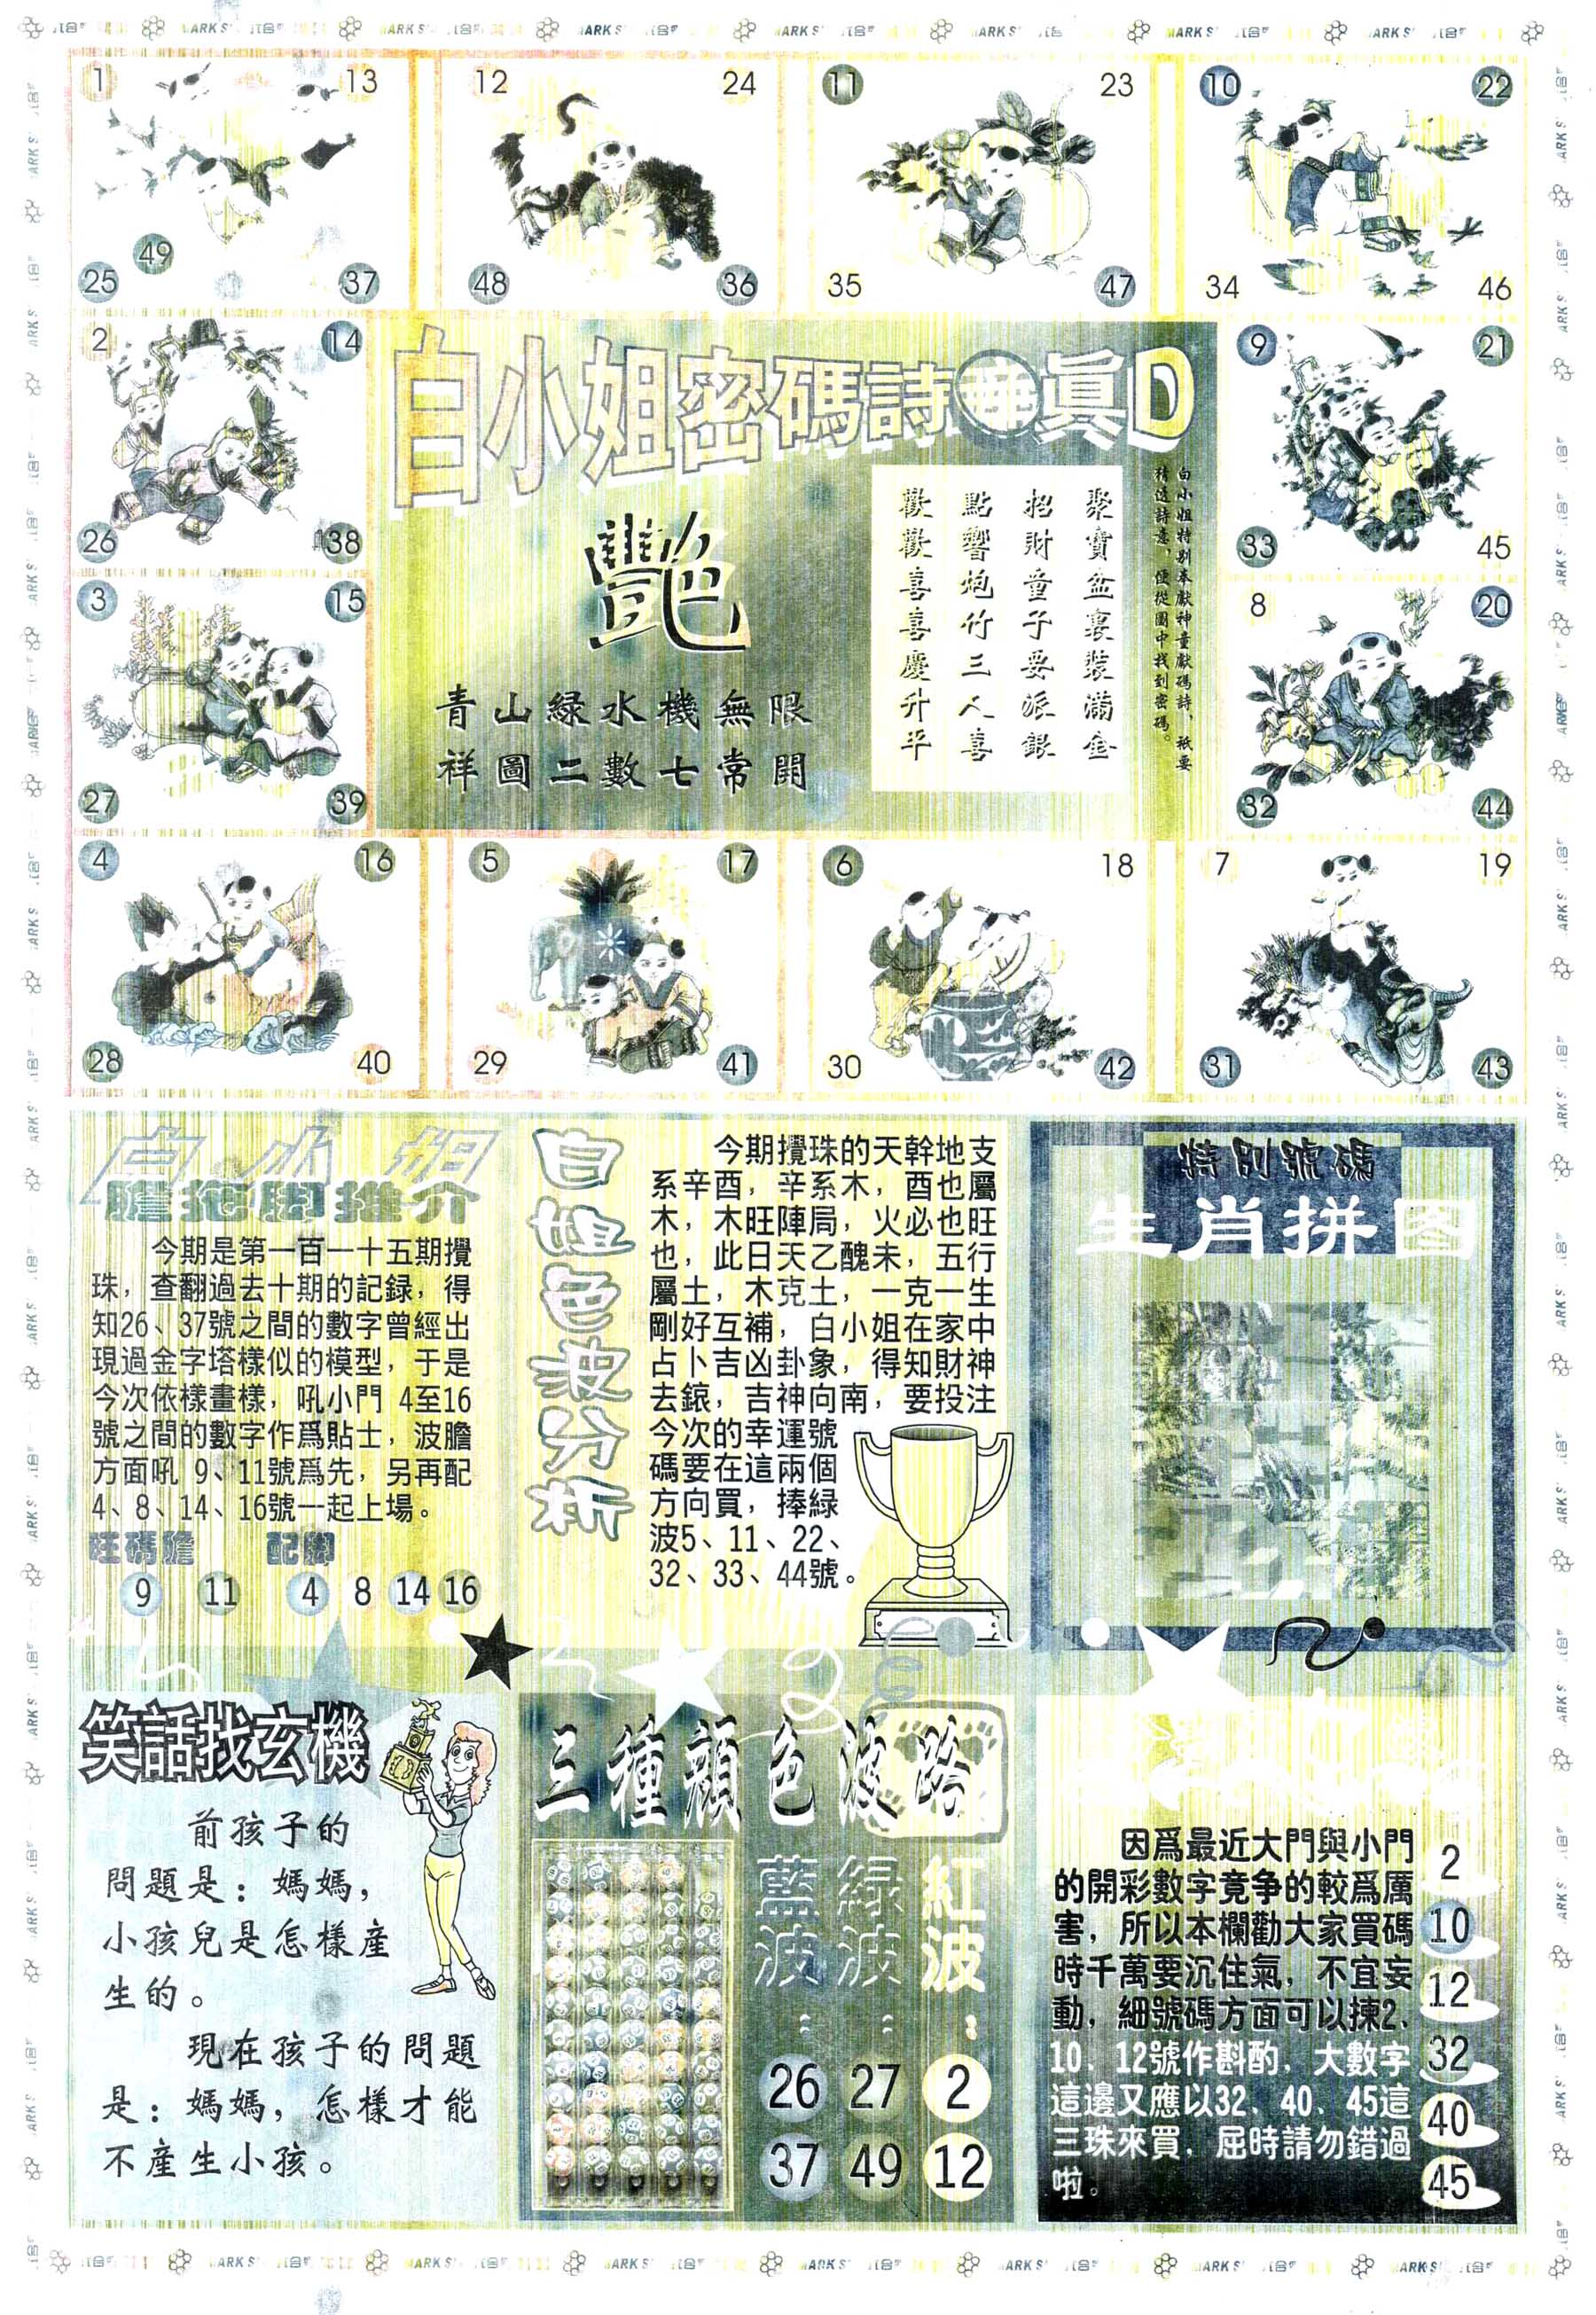 1 13 12 24 11 23 10 22
49
25 37 48 36 35 47 34 46
2 14
26 38
3 15
27 39
9 21
33 45
8 20
32 44
白小姐密碼詩 眞D
艷
青山緑水機無限
祥圖二數七常開
聚寶盆裏裝滿金
招財童子要派銀
點響炮竹三人喜
歡歡喜喜慶升平
白小姐特别奉獻神童獻碼詩，祇要
猜透詩意，便從圖中找到密碼。
4 16 5 17 6 18 7 19
28 40 29 41 30 42 31 43
白小姐
膽拖脚推介
今期是第一百一十五期攪
珠，查翻過去十期的記録，得
知26、37號之間的數字曾經出
現過金字塔樣似的模型，于是
今次依樣畫樣，吼小門 4至16
號之間的數字作爲貼士，波膽
方面吼 9、11號爲先，另再配
4、8、14、16號一起上場。
旺碼膽 配脚
9 11 4 8 14 16
白姐色波分析
今期攪珠的天幹地支
系辛酉，辛系木，酉也屬
木，木旺陣局，火必也旺
也，此日天乙醜未，五行
屬土，木克土，一克一生
剛好互補，白小姐在家中
占卜吉凶卦象，得知財神
去鎄，吉神向南，要投注
今次的幸運號
碼要在這兩個
方向買，捧緑
波5、11、22、
32、33、44號。
特别號碼
生肖拼图
笑話找玄機
前孩子的
問題是：媽媽，
小孩兒是怎樣産
生的。
現在孩子的問題
是：媽媽，怎樣才能
不産生小孩。
三種顔色波路
藍波： 緑波： 紅波：
26 27 2
37 49 12
因爲最近大門與小門
的開彩數字竟争的較爲厲
害，所以本欄勸大家買碼
時千萬要沉住氣，不宜妄
動，細號碼方面可以揀2、
10、12號作斟酌，大數字
這邊又應以32、40、45這
三珠來買，屆時請勿錯過
啦。
2
10
12
32
40
45